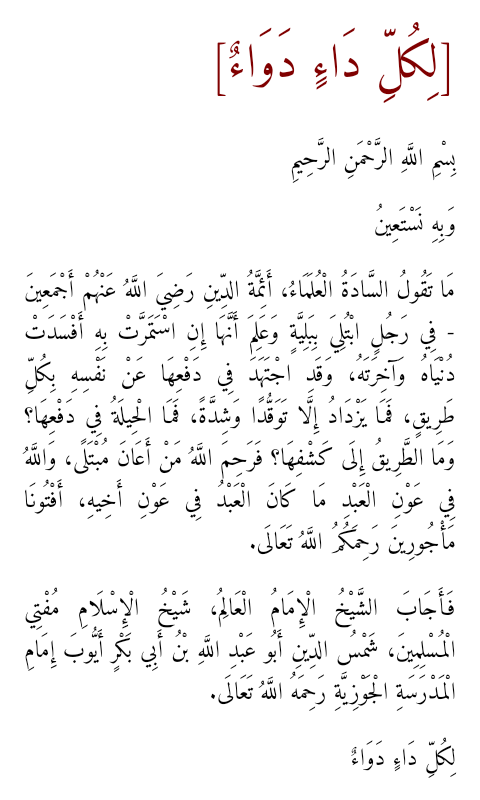 [لِكُلِّ دَاءٍ دَوَاءٌ]
بِسْمِ اللَّهِ الرَّحْمَنِ الرَّحِيمِ
وَبِهِ نَسْتَعِينُ
مَا تَقُولُ السَّادَةُ الْعُلَمَاءُ، أَئِمَّةُ الدِّينِ رَضِيَ اللَّهُ عَنْهُمْ أَجْمَعِينَ
- فِي رَجُلٍ ابْتُلِيَ بِبَلِيَّةٍ وَعَلِمَ أَنَّهَا إِنِ اسْتَمَرَّتْ بِهِ أَفْسَدَتْ
دُنْيَاهُ وَآخِرَتَهُ، وَقَدِ اجْتَهَدَ فِي دَفْعِهَا عَنْ نَفْسِهِ بِكُلِّ
طَرِيقٍ، فَمَا يَزْدَادُ إِلَّا تَوَقُّدًا وَشِدَّةً، فَمَا الْحِيلَةُ فِي دَفْعِهَا؟
وَمَا الطَّرِيقُ إِلَى كَشْفِهَا؟ فَرَحِمَ اللَّهُ مَنْ أَعَانَ مُبْتَلًى، وَاللَّهُ
فِي عَوْنِ الْعَبْدِ مَا كَانَ الْعَبْدُ فِي عَوْنِ أَخِيهِ، أَفْتُونَا
مَأْجُورِينَ رَحِمَكُمُ اللَّهُ تَعَالَى.
فَأَجَابَ الشَّيْخُ الْإِمَامُ الْعَالِمُ، شَيْخُ الْإِسْلَامِ مُفْتِي
الْمُسْلِمِينَ، شَمْسُ الدِّينِ أَبُو عَبْدِ اللَّهِ بْنُ أَبِي بَكْرٍ أَيُّوبَ إِمَامِ
الْمَدْرَسَةِ الْجَوْزِيَّةِ رَحِمَهُ اللَّهُ تَعَالَى.
لِكُلِّ دَاءٍ دَوَاءٌ